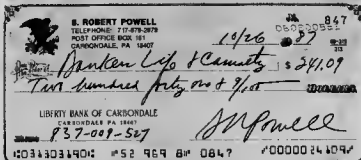 847
B. ROBERT POWELL
TELEPHONE: 717-679-2679
POST OFFICE BOX 161
CARBONDALE, PA 18407
10/26 87
Bankers Life & Casualty $ 241.09
Two hundred forty one & 9/100 DOLLARS
LIBERTY BANK OF CARBONDALE
CARBONDALE PA 18407
837-009-527
BRPowell
⑆031303190⑆ ⑈52 969 8⑈ 0847 ⑈0000024109⑈